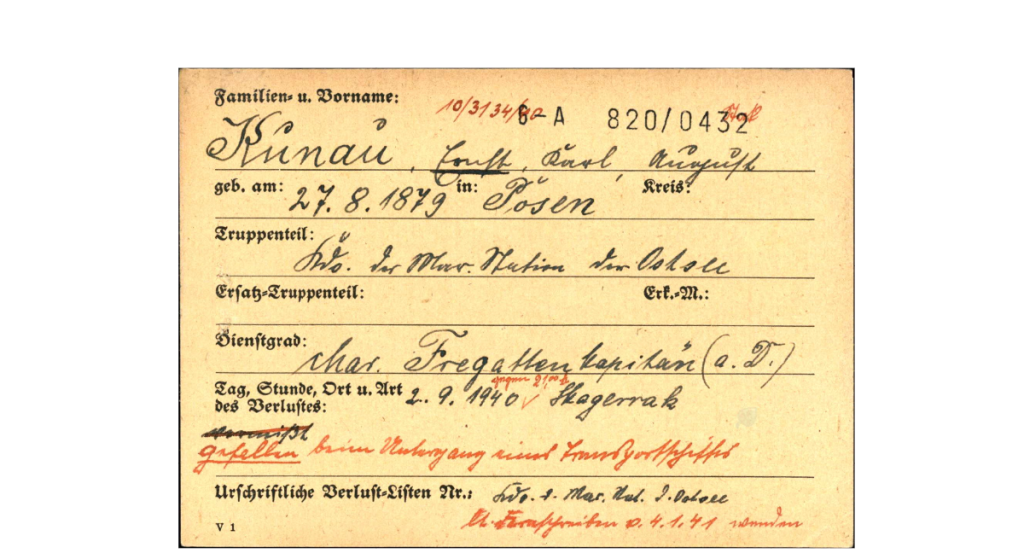 Familien- u. Vorname:
10/3134/40 8-A 820/0432
Kunau, Ernst, Karl, August
geb. am: 27.8.1879 in: Posen Kreis:
Truppenteil:
Kdo. der Mar. Station der Ostsee
Ersatz-Truppenteil: Erk.-M.:
Dienstgrad:
char. Fregattenkapitän (a. D.)
gegen 21,00
Tag, Stunde, Ort u. Art 2.9.1940 Skagerrak
des Verlustes:
vermißt
gefallen beim Untergang eines Transportschiffes
Urschriftliche Verlust-Listen Nr.: Kdo. d. Mar. Stat. d. Ostsee
Fernschreiben v. 4.1.41 wenden
V 1